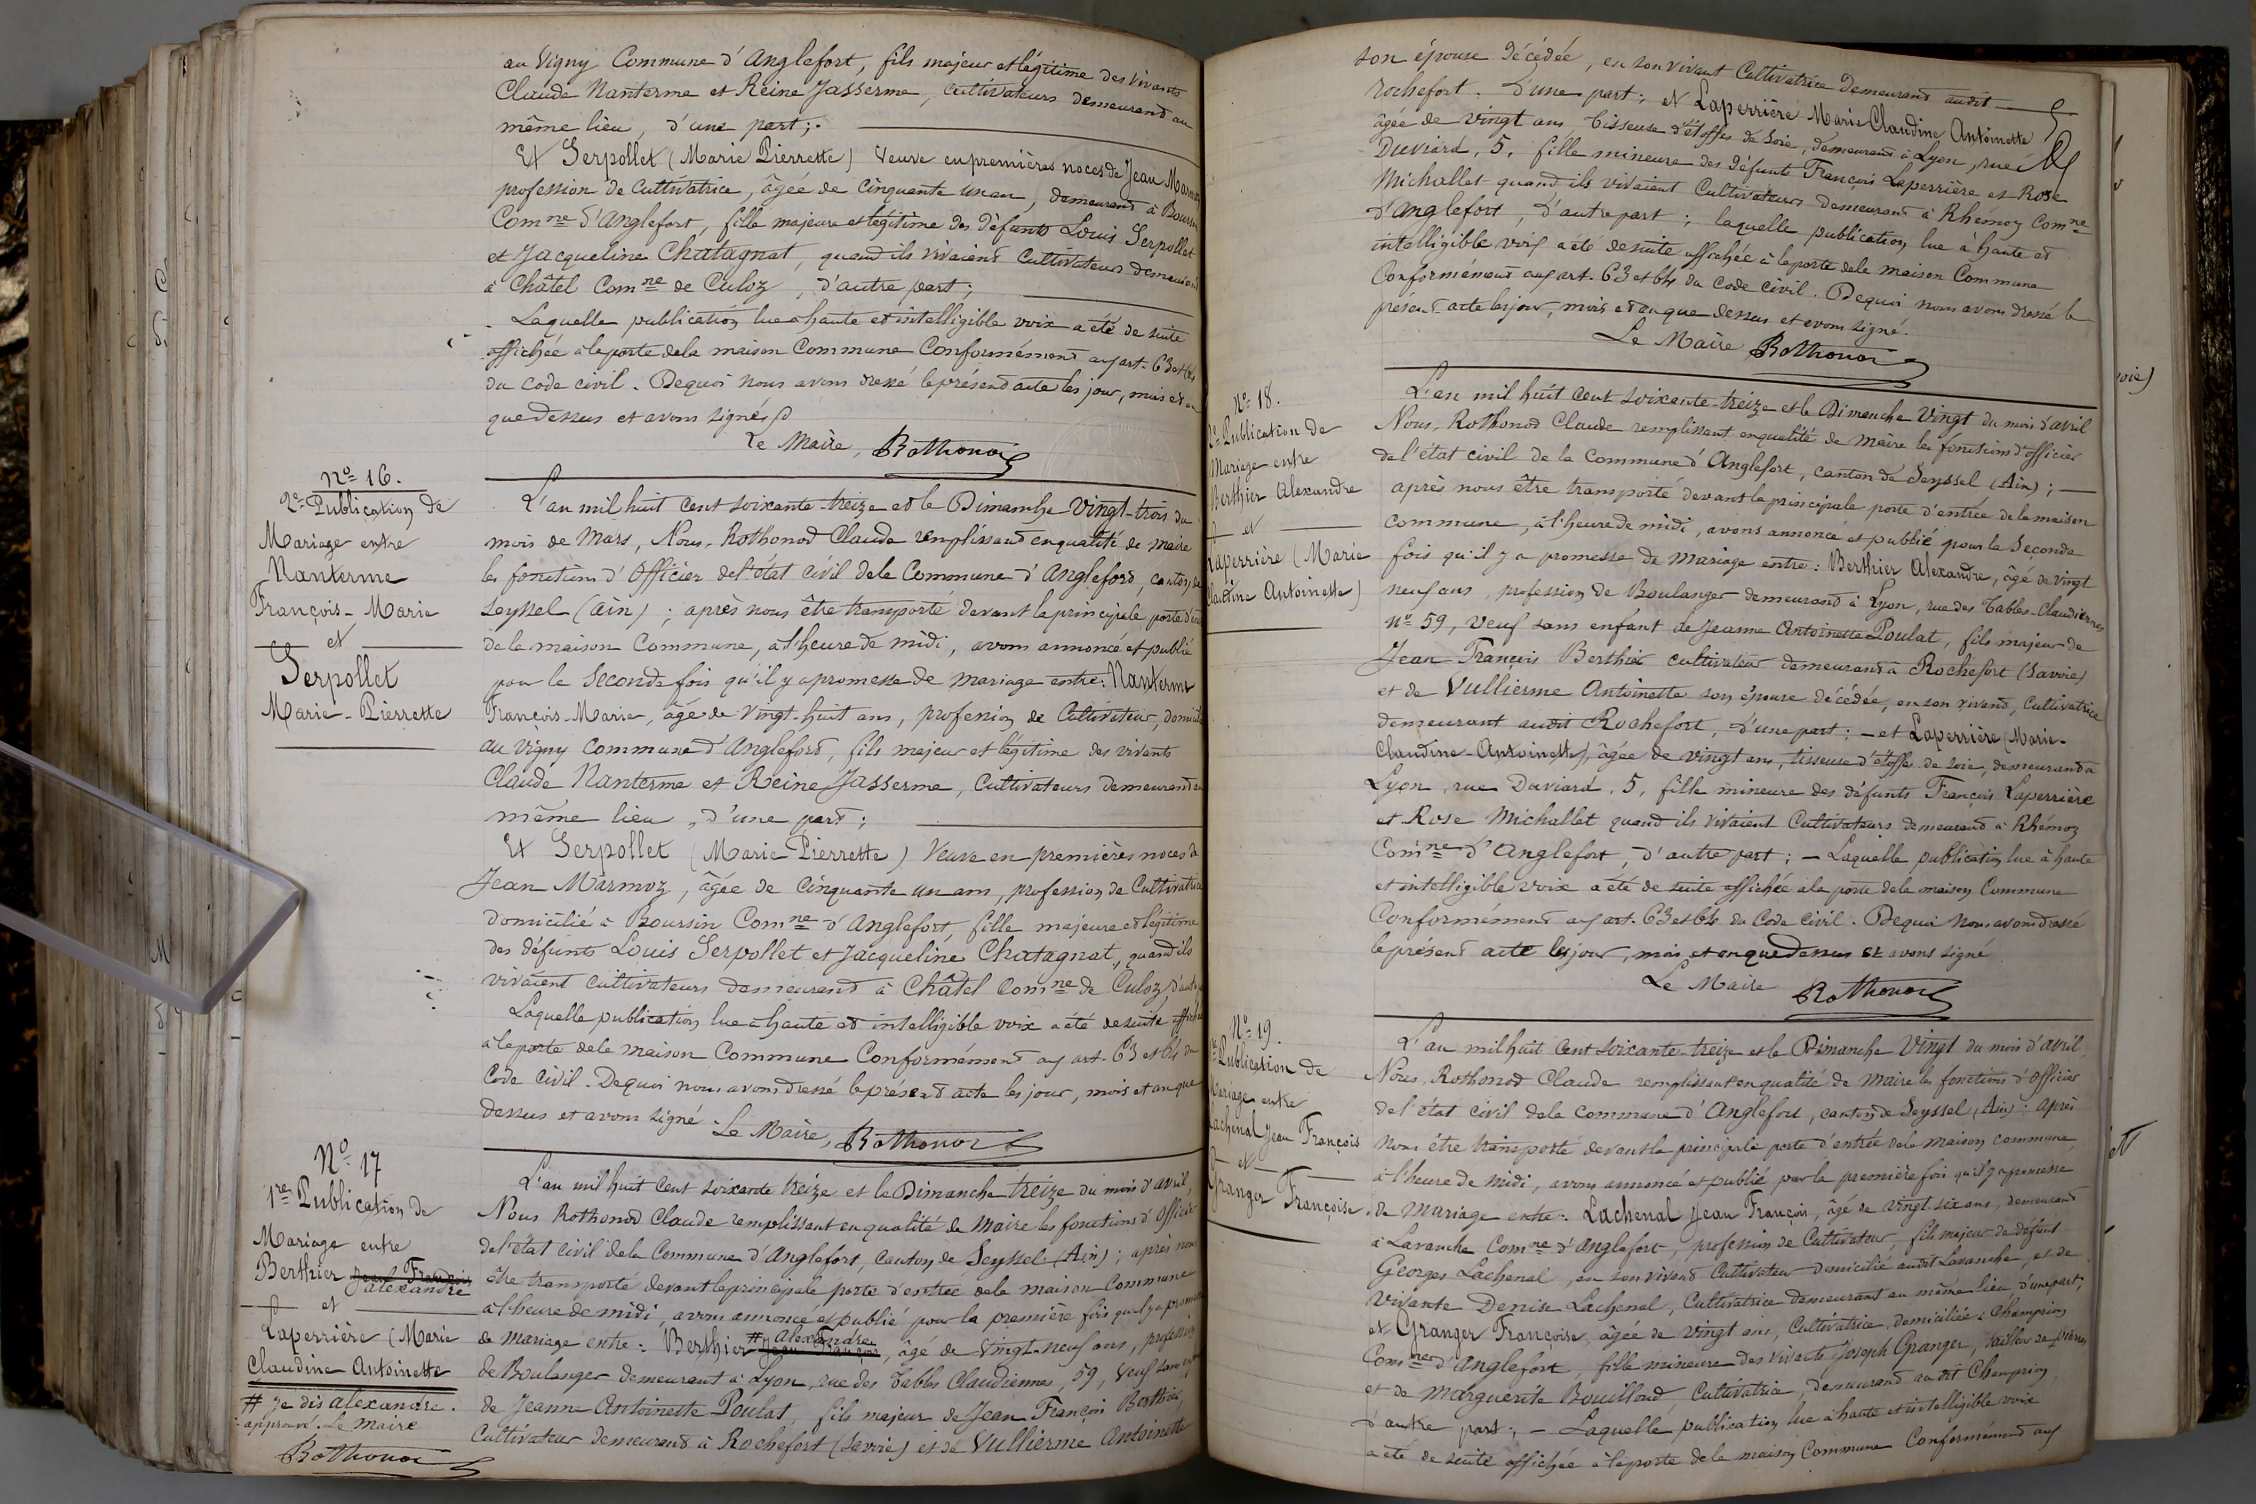 au Vigny Commune d'Anglefort, fils majeur et légitime des vivants
Claude Nanterme et Reine Jasserme, cultivateurs demeurand au
même lieu, d'une part;
Et Serpollet (Marie Pierrette) veuve en premières noces de Jean
profession de Cultivatrice, âgée de cinquante un an, demeurand à
Comne d'Anglefort, fille majeure et légitime des défunts Louis Serpollet
et Jacqueline Chatagnat, quand ils vivaient Cultivateurs
à Châtel Comne de Culoz, d'autre part;
Laquelle publication lue à haute et intelligible voix a été de suite
affichée à la porte de la maison Commune Conformément aux art. 63 et 64
du Code civil. De quoi nous avons dressé le présend acte les jour, mois et an
que dessus et avons signés
Le Maire, Rothonod
No 16.
2e Publication de
Mariage entre
Nanterme
François-Marie
et
Serpollet
Marie-Pierrette
L'an mil huit cent soixante-treize et le Dimanche vingt-trois du
mois de Mars, Nous, Rothonod Claude remplissand en qualité de maire
les fonctions d'Officier de l'état civil de la Commune d'Angleford, canton de
Seyssel (Ain); après nous être transporté devant la principale porte
de la maison Commune, à l'heure de midi, avons annoncé et publié
pour la Seconde fois qu'il y a promesse de mariage entre: Nanterme
François-Marie, âgé de vingt-huit ans, profession de Cultivateur,
au Vigny Commune d'Angleford, fils majeur et légitime des vivants
Claude Nanterme et Reine Jasserme, Cultivateurs demeurand au
même lieu, d'une part;
Et Serpollet (Marie Pierrette) Veuve en premières noces de
Jean Marmoz, âgée de Cinquante un ans, profession de Cultivatrice
domicilié à Boursin Comne d'Anglefort, fille majeure et légitime
des défunts Louis Serpollet et Jacqueline Chatagnat, quand ils
vivaient cultivateurs demeurand à Châtel Comne de Culoz
Laquelle publication lue à haute et intelligible voix a été de suite affichée
à la porte de la maison Commune Conformément aux art. 63 et 64 du
Code Civil. De quoi nous avons dressé le présend acte les jour, mois et an que
dessus et avons signé. Le Maire, Rothonod
No 17
1re Publication de
Mariage entre
Berthier Jean François
alexandre
et
Laperrière (Marie
Claudine Antoinette
# Je dis alexandre.
approuvé. Le maire
Rothonod
L'an mil huit cent soixante treize et le Dimanche treize du mois d'avril,
Nous Rothonod Claude remplissant en qualité de maire les fonctions d'Officier
de l'état civil de la Commune d'Anglefort, Canton de Seyssel (Ain); après nous
être transporté devant la principale porte d'entrée de la maison Commune
à l'heure de midi, avons annoncé et publié pour la première fois qu'il y a
de mariage entre: Berthier # alexandre Jean François, âgé de vingt-neuf ans, profession
de Boulanger demeurant à Lyon, rue des Tables Claudienne, 59, veuf sans
de Jeanne Antoinette Poulat, fils majeur de Jean François Berthier,
Cultivateur demeurand à Rochefort (Savoie) et de Vullierme Antoinette
son épouse décédée, en son vivant Cultivatrice demeurand audit
Rochefort. D'une part; et Laperrière Marie Claudine Antoinette
âgée de vingt ans, tisseuse d'étoffes de soie, demeurand à Lyon, rue
Duviard, 5, fille mineure des défunts François Laperrière et Rose
Michallet quand ils vivaient Cultivateurs demeurand à Rhémoz Comne
d'Anglefort, d'autre part; laquelle publication lue à haute et
intelligible voix a été de suite affichée à la porte de la maison Commune
Conformément aux art. 63 et 64 du Code Civil. De quoi nous avons dressé le
présent acte les jour, mois et an que dessus et avons signé.
Le Maire Rothonod
No 18.
2e Publication de
Mariage entre
Berthier Alexandre
et
Laperrière (Marie
Claudine Antoinette)
L'an mil huit cent soixante-treize et le Dimanche vingt du mois d'avril
Nous, Rothonod Claude remplissant en qualité de maire les fonctions d'officier
de l'état civil de la Commune d'Anglefort, canton de Seyssel (Ain);
après nous être transporté devant la principale porte d'entrée de la maison
commune, à l'heure de midi, avons annoncé et publié pour la Seconde
fois qu'il y a promesse de mariage entre: Berthier Alexandre, âgé de vingt
neuf ans, profession de Boulanger demeurand à Lyon, rue des Tables-Claudiennes
no 59, veuf sans enfant de Jeanne Antoinette Poulat, fils majeur de
Jean François Berthier cultivateur demeurand à Rochefort (Savoie)
et de Vullierme Antoinette son épouse décédée, en son vivand, Cultivatrice
demeurant audit Rochefort, d'une part; - et Laperrière (Marie-
Claudine-Antoinette), âgée de vingt ans, tisseuse d'étoffes de soie, demeurand à
Lyon, rue Duviard, 5, fille mineure des défunts François Laperrière
et Rose Michallet quand ils vivaient Cultivateurs demeurand à Rhémoz
Comne d'Anglefort, d'autre part; - Laquelle publication lue à haute
et intelligible voix a été de suite affichée à la porte de la maison Commune
Conformément aux art. 63 et 64 du Code Civil. De quoi nous avons dressé
le présend acte les jour, mois et an que dessus et avons signé
Le Maire Rothonod
No 19.
Publication de
Mariage entre
Lachenal Jean François
et
Granger Françoise
L'an mil huit cent soixante-treize et le Dimanche Vingt du mois d'avril,
Nous, Rothonod Claude remplissant en qualité de maire les fonctions d'Officier
de l'état civil de la commune d'Anglefort, canton de Seyssel (Ain); après
nous être transporté devant la principale porte d'entrée de la maison commune,
à l'heure de midi, avons annoncé et publié pour la première fois qu'il y a promesse
de mariage entre: Lachenal Jean François, âgé de vingt-six ans, demeurand
à Lavanche Comne d'Anglefort, profession de Cultivateur, fils majeur de défunt
Georges Lachenal, en son vivand Cultivateur domicilié audit Lavanche, et de
vivante Denise Lachenal, Cultivatrice demeurant au même lieu, d'une part;
et Granger Françoise, âgée de vingt ans, Cultivatrice, domiciliée à Champrion
Comne d'Anglefort, fille mineure des vivants Joseph Granger, tailleur de pierres
et de Marguerite Bouilloud, Cultivatrice, demeurand audit Champrion,
d'autre part; - Laquelle publication lue à haute et intelligible voix
a été de suite affichée à la porte de la maison Commune Conformément aux